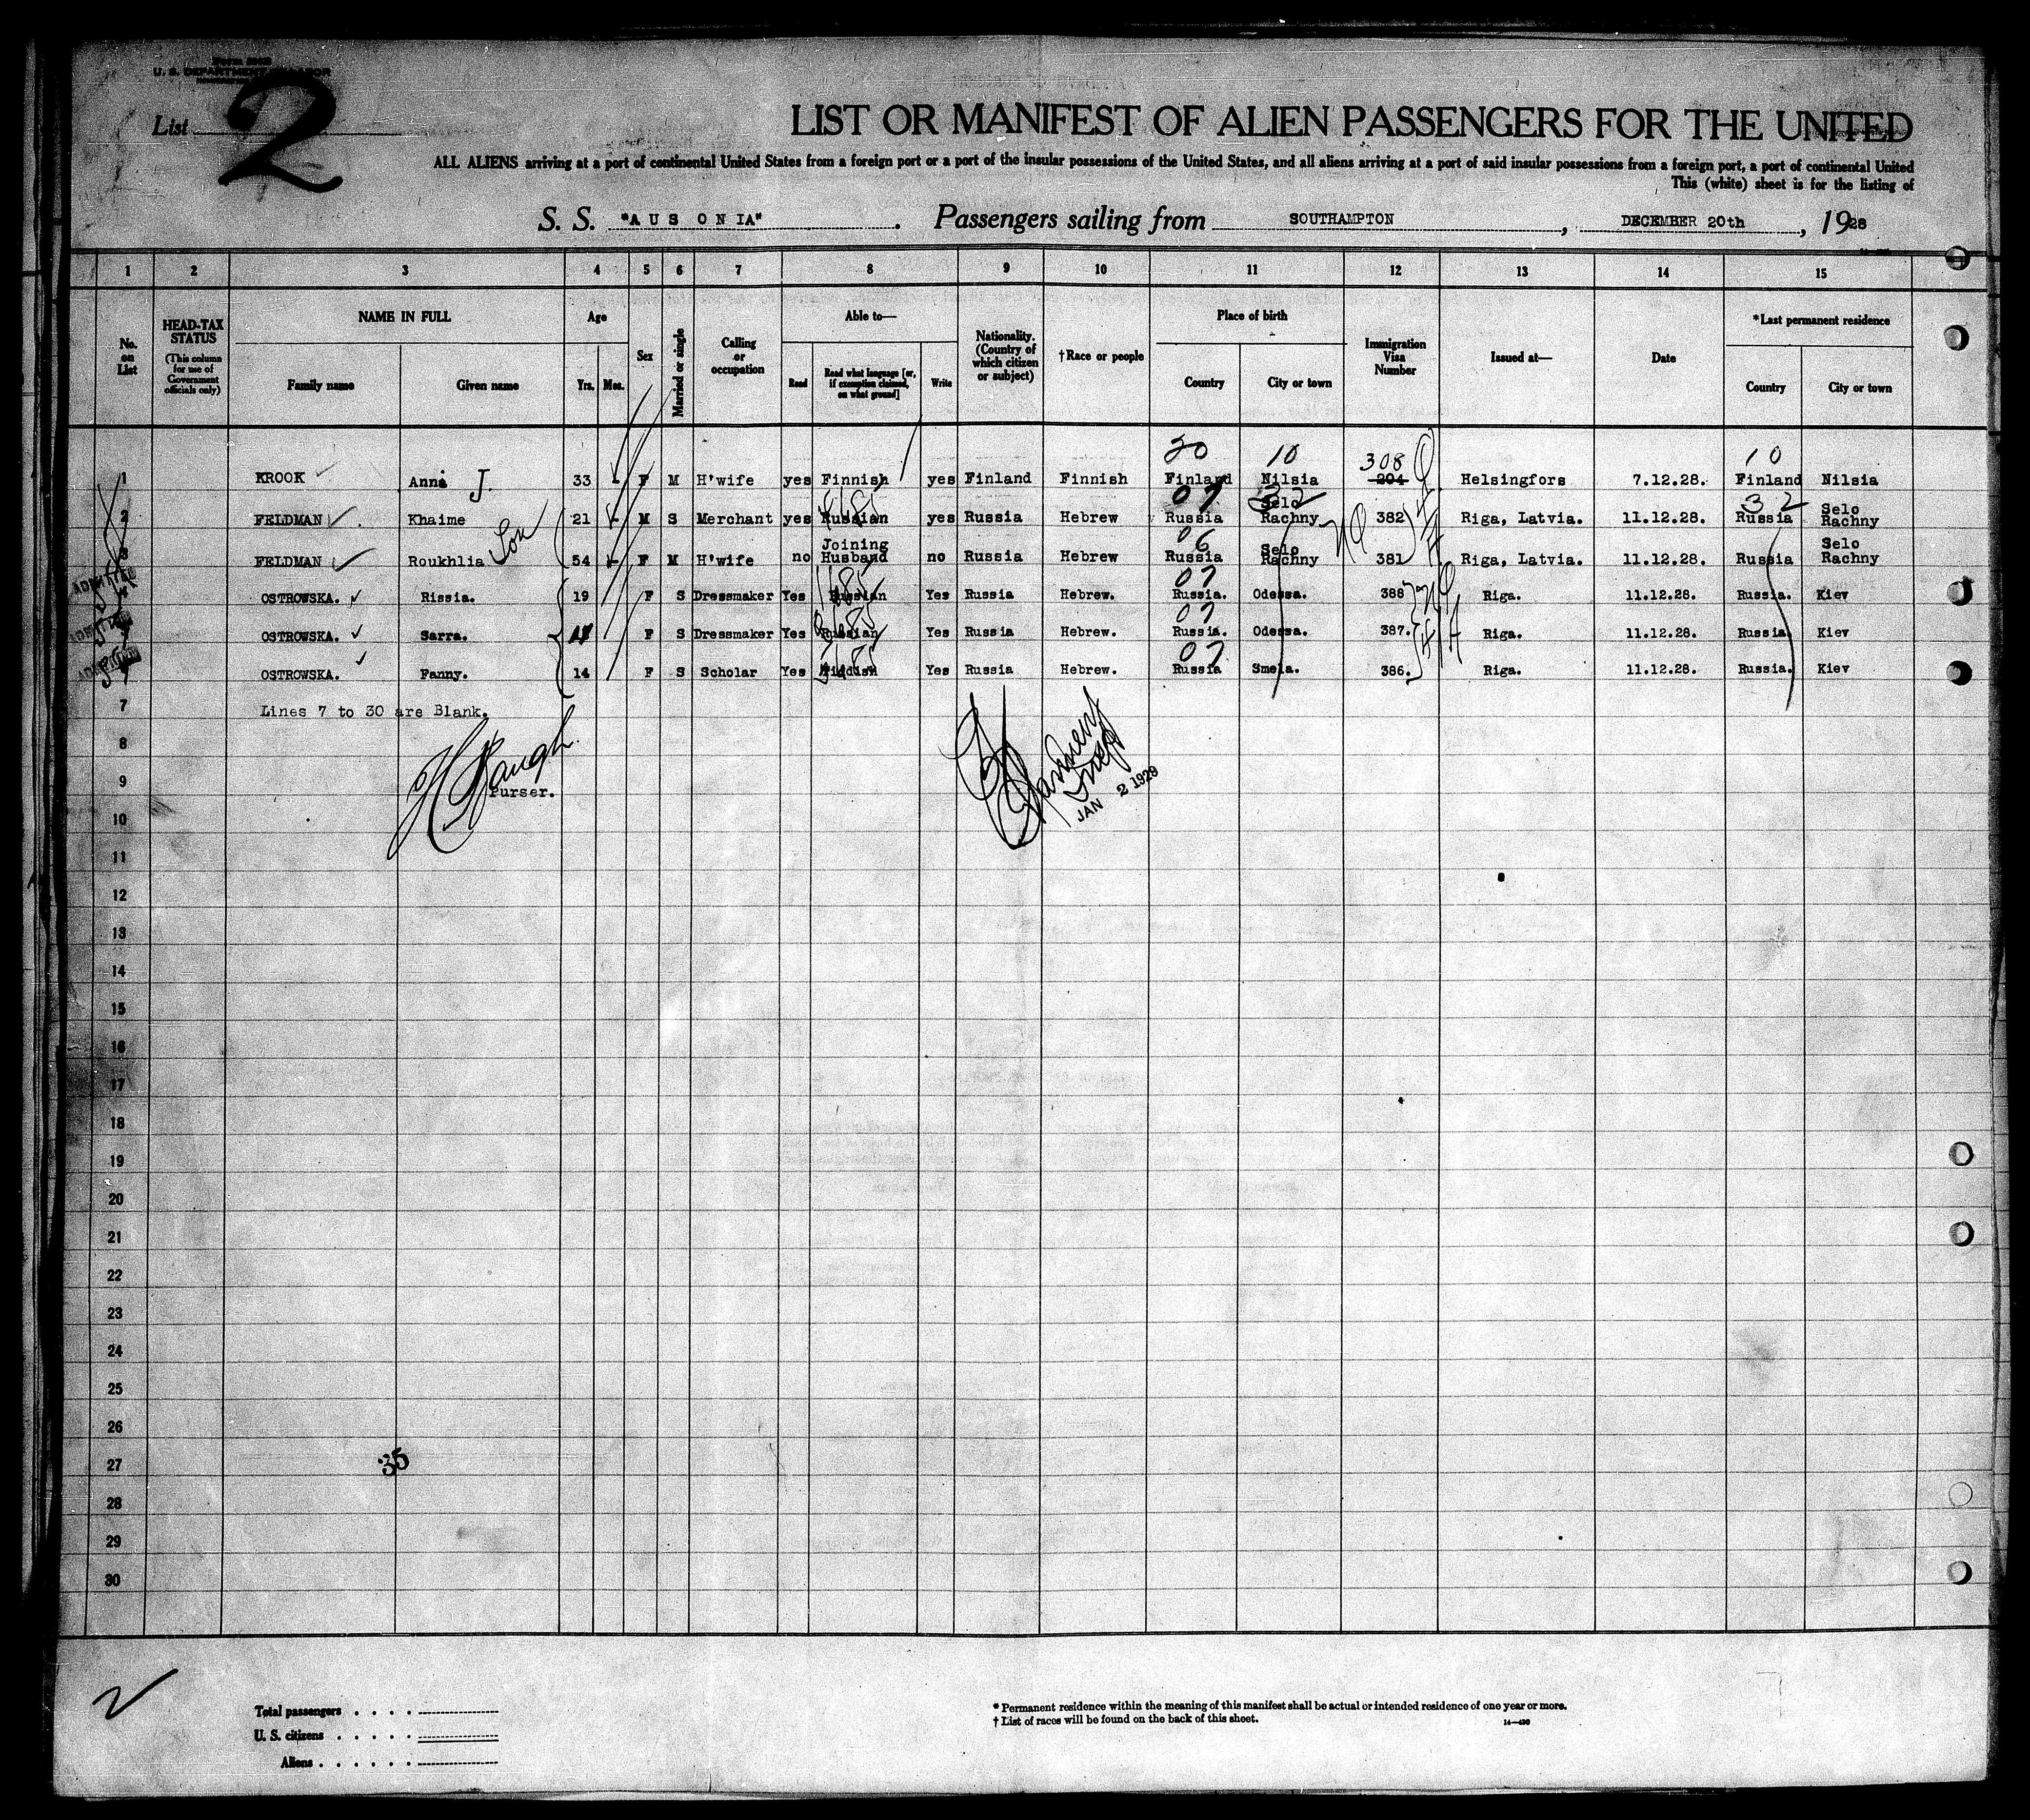 Form 500
U. S. DEPARTMENT OF LABOR
List 2
LIST OR MANIFEST OF ALIEN PASSENGERS FOR THE UNITED
ALL ALIENS arriving at a port of continental United States from a foreign port or a port of the insular possessions of the United States, and all aliens arriving at a port of said insular possessions from a foreign port, a port of continental United
This (white) sheet is for the listing of
S. S. "A U S O N IA". Passengers sailing from SOUTHAMPTON, DECEMBER 20th, 1928
1 2 3 4 5 6 7 8 9 10 11 12 13 14 15
No. on List
HEAD-TAX STATUS (This column for use of Government officials only)
NAME IN FULL
Family name Given name
Age
Yrs. Mos.
Sex
Married or single
Calling or occupation
Able to—
Read Read what language [or, if exemption claimed, on what ground] Write
Nationality. (Country of which citizen or subject)
†Race or people
Place of birth
Country City or town
Immigration Visa Number
Issued at—
Date
*Last permanent residence
Country City or town
20 10 308 10
1 KROOK Anna J. 33 F M H'wife yes Finnish yes Finland Finnish Finland Nilsia 204 Helsingfors 7.12.28. Finland Nilsia
07 32 32
2 FELDMAN Khaime 21 M S Merchant yes Russian yes Russia Hebrew Russia Selo Rachny 382 Riga, Latvia. 11.12.28. Russia Selo Rachny
Son
06
3 FELDMAN Roukhlia 54 F M H'wife no Joining Husband no Russia Hebrew Russia Selo Rachny 381 Riga, Latvia. 11.12.28. Russia Selo Rachny
07
ADMITTED 4 OSTROWSKA. Rissia. 19 F S Dressmaker Yes Russian Yes Russia Hebrew. Russia. Odessa. 388 Riga. 11.12.28. Russia. Kiev
07
ADMITTED 5 OSTROWSKA. Sarra. F S Dressmaker Yes Russian Yes Russia Hebrew. Russia. Odessa. 387. Riga. 11.12.28. Russia. Kiev
07
ADMITTED OSTROWSKA. Fanny. 14 F S Scholar Yes Yiddish Yes Russia Hebrew. Russia Smela. 386. Riga. 11.12.28. Russia. Kiev
7 Lines 7 to 30 are Blank.
8
9 Purser.
JAN 2 1929
10
11
12
13
14
15
16
17
18
19
20
21
22
23
24
25
26
27
35
28
29
30
2
Total passengers . . . .
U. S. citizens . . . . .
Aliens . . . . . .
* Permanent residence within the meaning of this manifest shall be actual or intended residence of one year or more.
† List of races will be found on the back of this sheet.
14—430